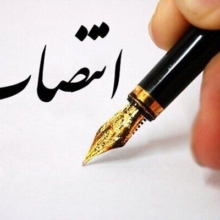 انتصا